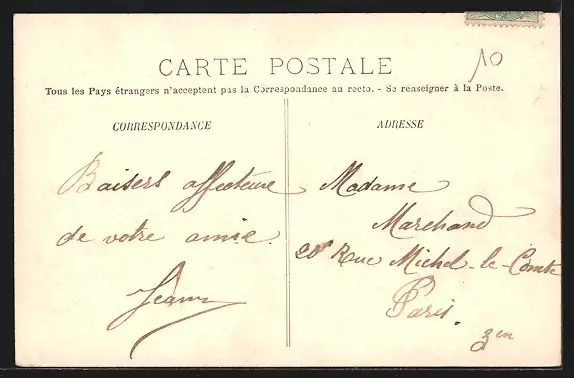 10
CARTE POSTALE
Tous les Pays étrangers n'acceptent pas la Correspondance au recto. - Se renseigner à la Poste.
CORRESPONDANCE
ADRESSE
Baisers
de votre amie.
Madame
Marchand
20 Rue Michel-le-Comte
Paris.
3en